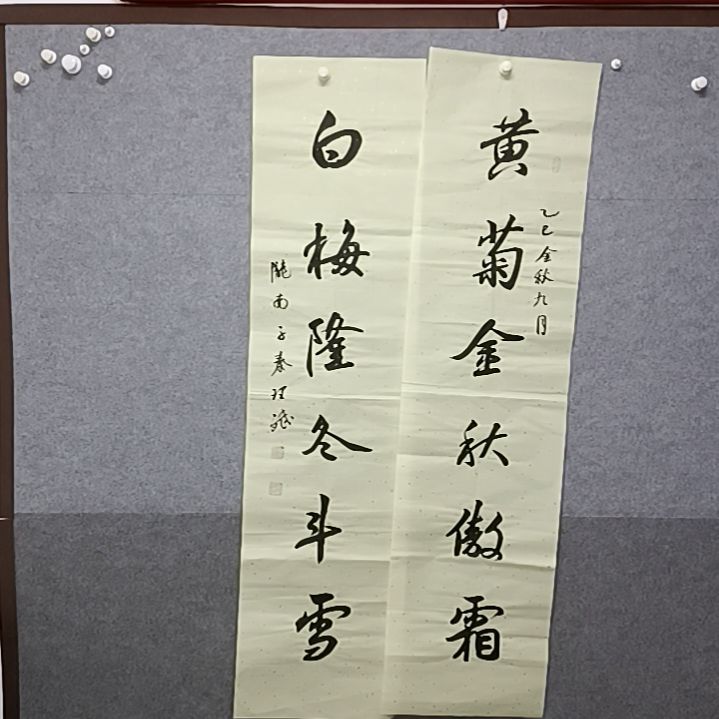 黄菊金秋傲霜
乙巳金秋九月
白梅隆冬斗雪
陇南子秦